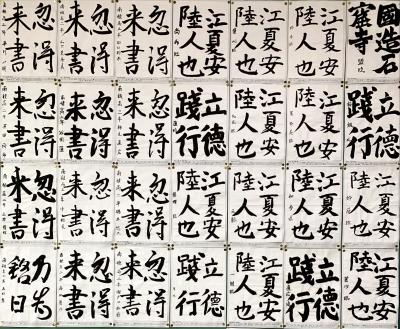 國造石
窟寺
江夏安
陸人也
江夏安
陸人也
江夏安
陸人也
忽得
来書
忽得
来書
忽得
来書
立德
踐行
江夏安
陸人也
江夏安
陸人也
立德
踐行
忽得
来書
忽得
来書
忽得
来書
江夏安
陸人也
江夏安
陸人也
江夏安
陸人也
江夏安
陸人也
忽得
来書
忽得
来書
忽得
来書
江夏安
陸人也
立德
踐行
江夏安
陸人也
立德
踐行
忽得
来書
忽得
来書
力為
銘日